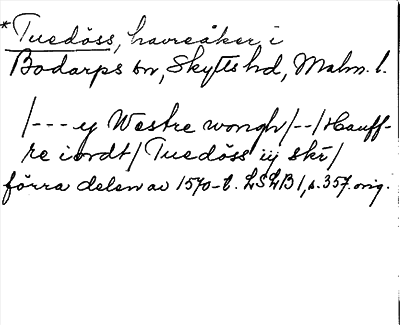 *Tuedöss, havreåker i
Bodarps sn, Skytts hd, Malm. l.
/--- ej Westre wongh/--/Hauff-
re iordt/Tuedöss iij skr/
förra delen av 1570-t. LSLB 1, s. 357. orig.